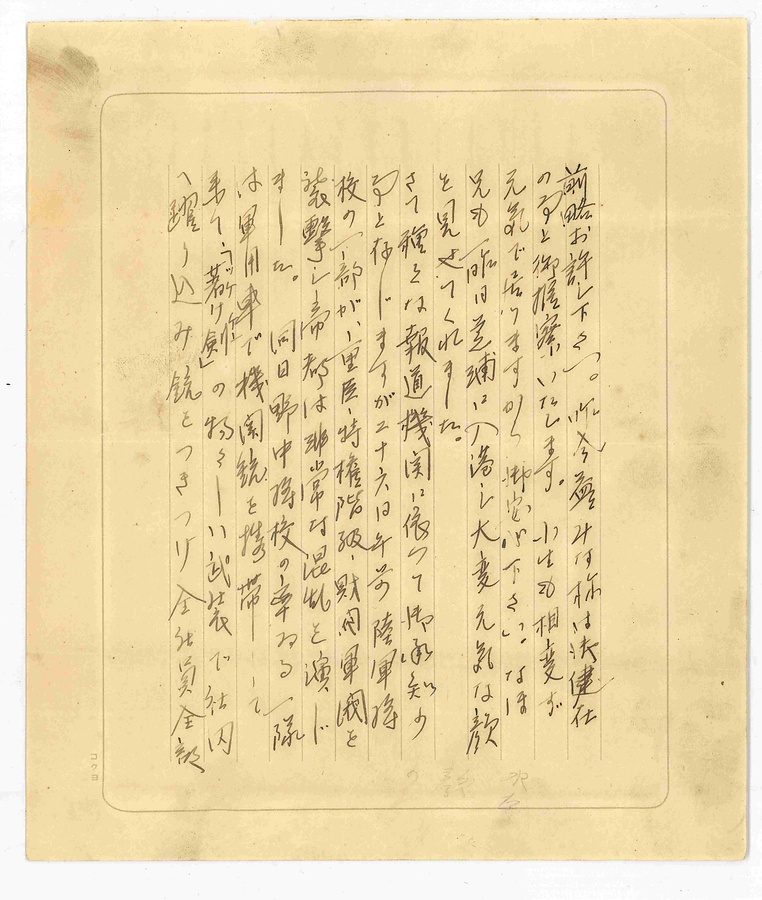 前略お許し下さい。昨今益々みな様は御健在
の事と御推察いたします。小生も相変ず
元気で居りますから御安心下さい。なほ
兄も一昨日芝浦に入港し大変元気な顔
を見せてくれました。
さて種々は報道機関に依つて御承知の
事と存じますが二十六日午前陸軍将
校の一部が、重臣、特権階級、財閥軍閥を
襲撃し帝都は非常な混乱を演じ
ました。同日野中将校の率ゐる一隊
は軍用車で機関銃を携帯して
来り「着け剣」の物々しい武装で社内
へ躍り込み銃をつきつけ全社員全部
コクヨ